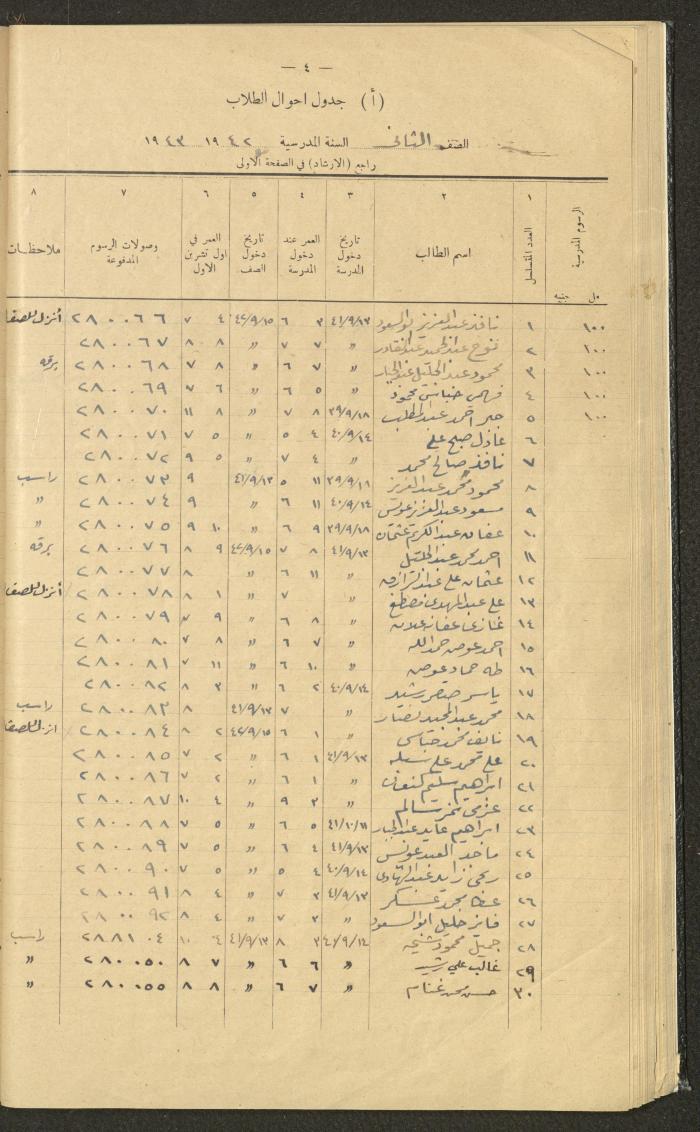 — ٤ —
(أ) جدول احوال الطلاب
الصف الثاني السنة المدرسية ١٩٤٢ ١٩٤٣
راجع (الارشاد) في الصفحة الاولى
الرسوم المدرسية ١ ٢ ٣ ٤ ٥ ٦ ٧ ٨
العدد المتسلسل اسم الطالب تاريخ دخول المدرسة العمر عند دخول المدرسة تاريخ دخول الصف العمر في اول تشرين الاول وصولات الرسوم المدفوعة ملاحظات
مل جنيه
١٠٠ ١ نافذ عبد العزيز ابو السعود ٤١/٩/١٣ ٣ ٦ ٤٢/٩/١٥ ٤ ٧ ٢٨٠٠٦٦ أنزل للصف
١٠٠ ٢ عبد الحميد عبد القادر " ٧ ٧ " ٨ ٨ ٢٨٠٠٦٧
١٠٠ ٣ محمود عبد الجليل عبد الجبار " ٧ ٦ " ٨ ٧ ٢٨٠٠٦٨ برقه
١٠٠ ٤ فهمي محمود " ٥ ٦ " ٦ ٧ ٢٨٠٠٦٩
١٠٠ ٥ جبر احمد عبد المطلب ٣٩/٩/١٨ ٨ ٧ " ٨ ١١ ٢٨٠٠٧٠
٦ عادل صبح علي ٤٠/٩/١٤ ٤ ٥ " ٥ ٧ ٢٨٠٠٧١
٧ نافذ صالح محمد " ٤ ٧ " ٥ ٩ ٢٨٠٠٧٢
٨ محمود محمد عبد العزيز ٣٩/٩/١٨ ١١ ٥ ٤١/٩/١٣ ٩ ٢٨٠٠٧٣ راسب
٩ مسعود عبد العزيز عونس ٤٠/٩/١٤ ١١ ٦ " ٩ ٢٨٠٠٧٤ "
١٠ عفان عبد الكريم عثمان ٣٩/٩/١٨ ٩ ٦ " ١٠ ٩ ٢٨٠٠٧٥ "
١١ احمد محمد عبد الجليل ٤١/٩/١٣ ٨ ٧ ٤٢/٩/١٥ ٩ ٨ ٢٨٠٠٧٦ برقه
١٢ عثمان علي عبد الرازق " ١١ ٦ " ٨ ٢٨٠٠٧٧
١٣ علي عبد الهادي مصطفى " ٧ " ١ ٨ ٢٨٠٠٧٨ أنزل للصف
١٤ غازي عفانه علان " ٨ ٦ " ٩ ٧ ٢٨٠٠٧٩
١٥ احمد عوض حمد الله " ٧ ٦ " ٨ ٧ ٢٨٠٠٨٠
١٦ طه حماد عوض " ١٠ ٦ " ١١ ٧ ٢٨٠٠٨١
١٧ ياسر خضر رشيد ٤٠/٩/١٤ ٢ ٦ " ٣ ٨ ٢٨٠٠٨٢
١٨ محمد عبد المجيد نصار " ٧ ٤١/٩/١٣ ٨ ٢٨٠٠٨٣ راسب
١٩ نايف محمد " ١ ٦ ٤٢/٩/١٥ ٢ ٨ ٢٨٠٠٨٤ انزل للصف
٢٠ علي محمد علي ٤١/٩/١٣ ١ ٦ " ٢ ٧ ٢٨٠٠٨٥
٢١ ابراهيم سليم كنعان " ١ ٦ " ٢ ٧ ٢٨٠٠٨٦
٢٢ عزمي نمر سالم " ٣ ٩ " ٤ ١٠ ٢٨٠٠٨٧
٢٣ ابراهيم عايد عبد الجبار ٤١/١٠/١١ ٥ ٦ " ٥ ٧ ٢٨٠٠٨٨
٢٤ ماجد العبد عونس ٤١/٩/١٣ ٤ ٦ " ٥ ٧ ٢٨٠٠٨٩
٢٥ ربحي زايد عبد الهادي ٤٠/٩/١٤ ٤ ٥ " ٥ ٧ ٢٨٠٠٩٠
٢٦ عطا محمد عسكر ٤١/٩/١٣ ٣ ٧ " ٤ ٨ ٢٨٠٠٩١
٢٧ فايز خليل ابو السعود " ٣ ٧ " ٤ ٨ ٢٨٠٠٩٢
٢٨ جميل محمود ٤٠/٩/١٤ ٣ ٨ ٤١/٩/١٣ ٤ ١٠ ٢٨٨١٠٤ راسب
٢٩ غالب علي رشيد " ٦ ٦ " ٧ ٨ ٢٨٠٠٥٠ "
٣٠ حسن محمد غنام " ٧ ٦ " ٨ ٨ ٢٨٠٠٥٥ "